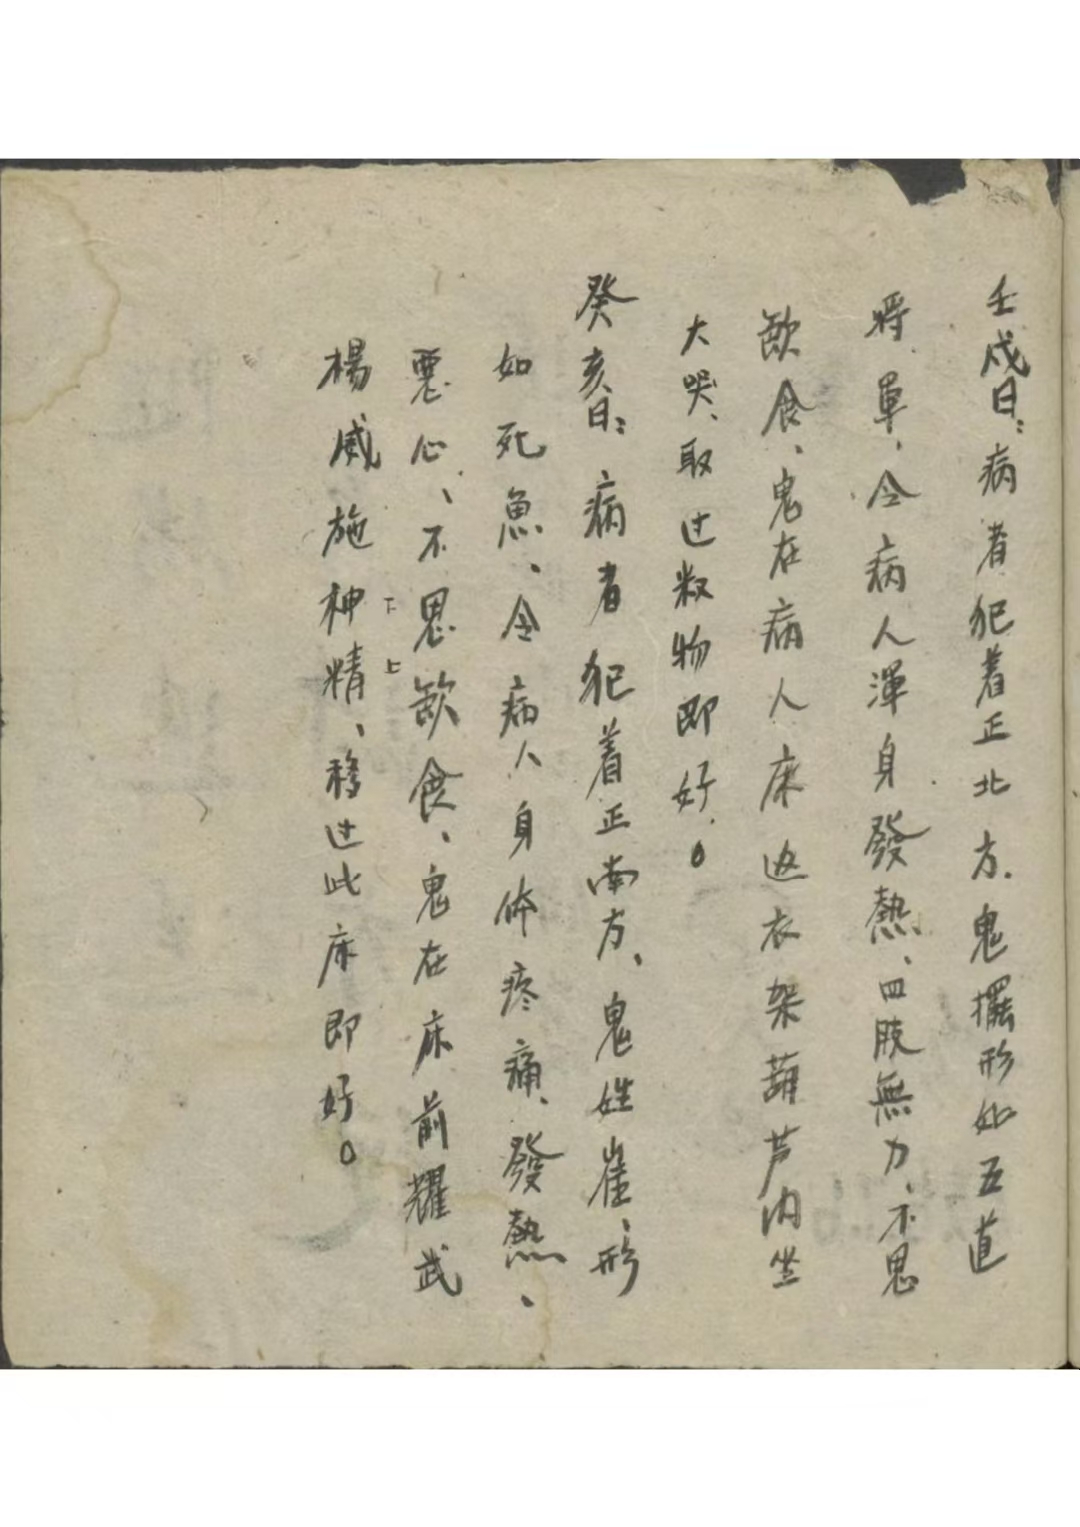 壬戌日：病者犯着正北方.鬼擺形如五道
将軍、令病人渾身發熱、四肢無力、不思
飲食、鬼在病人床边衣架葫芦内坐
大哭、取过救物即好。
癸亥日：病者犯着正南方、鬼姓崔、形
如死魚、令病人身体疼痛、發熱、
悪心、不思飲食、鬼在床前耀武
楊威施神精、移过此床即好。
下
上